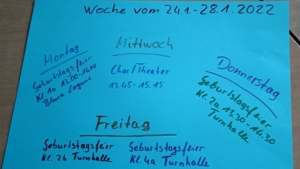 Woche vom 24.1.-28.1.2022
Montag
Geburtstagsfeier
Kl. 1a 13.00-14.00
Blaue Lagune
Mittwoch
Chor/Theater
13.45-15.15
Donnerstag
Geburtstagsfeier
Kl. 2a 13.30-14.30
Turnhalle
Freitag
Geburtstagsfeier
Kl. 2b Turnhalle
Geburtstagsfeier
Kl. 4a Turnhalle